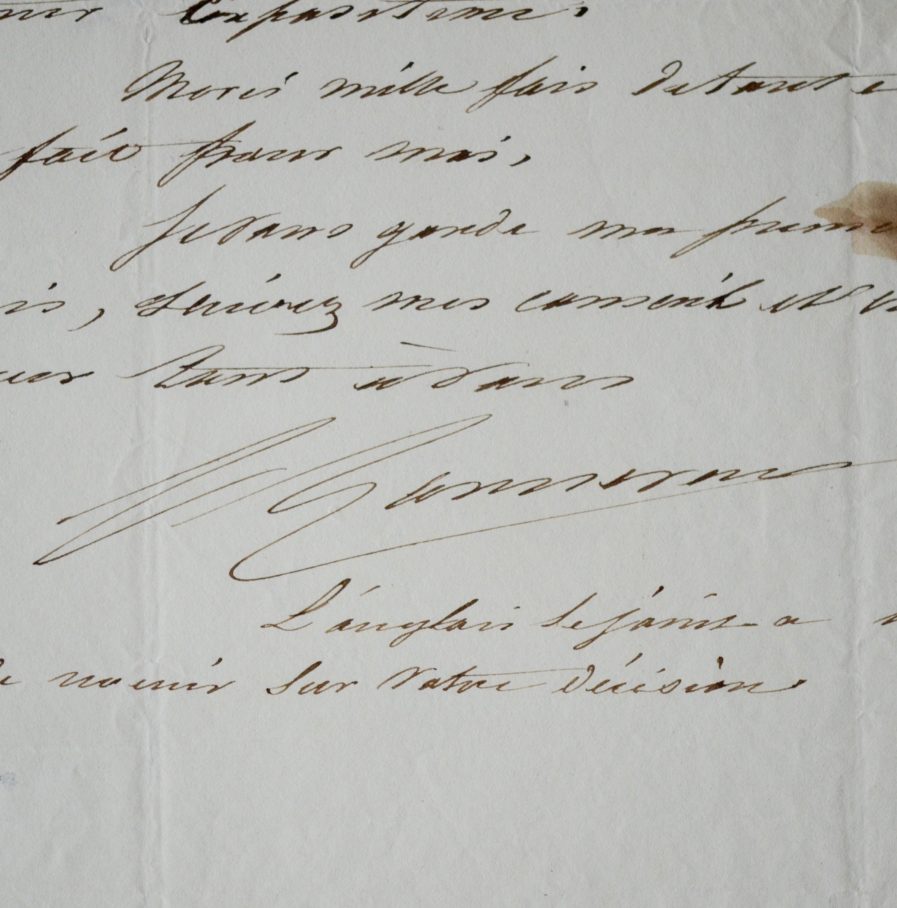 Exposition.
Merci mille fois de tout c
fait pour moi,
Je vous garde ma prome
is, suivez mes conseils et v
tout à vous
L'anglais se joint a
revenir sur votre décision